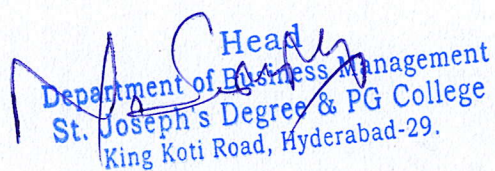 Head
Department of Business Management
St. Joseph's Degree & PG College
King Koti Road, Hyderabad-29.